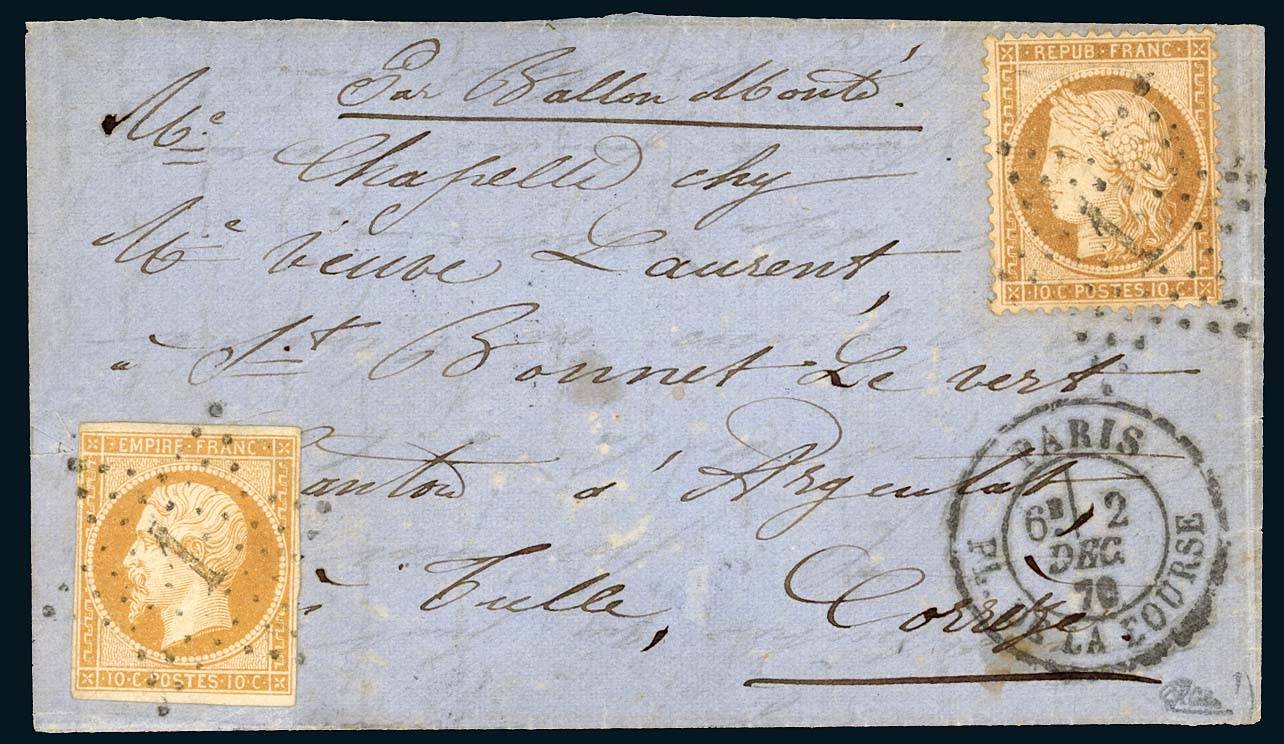 Par Ballon Monté.
Me.
Chapelle chy
Me veuve Laurent,
à St. Bonnet Le vert
Canton d'Argentat
à Tulle, Corrèze
REPUB·FRANC
10·C·POSTES·10·C
1
EMPIRE·FRANC
10·C·POSTES·10·C
1
PARIS
6E 2
DEC.
70
PL. DE LA BOURSE